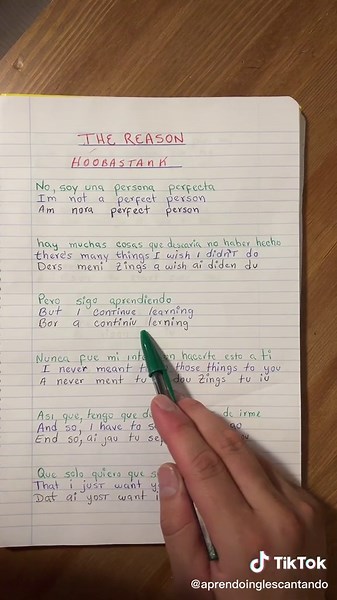 THE REASON
HOOBASTANK
No, soy una persona perfecta
Im not a perfect person
Am nora perfect person
hay muchas cosas que desearia no haber hecho
there's many things I wish I didn't do
Ders meni zings a wish ai diden du
Pero sigo aprendiendo
But I continue learning
Bor a continiu lerning
Nunca fue mi hacerte esto a ti
I never meant those things to you
A never ment tu dou zings tu iu
Asi, que, tengo que de irme
And so, I have to
End so, ai jau tu
Que solo quiero que
That i just want
Dat ai yost want
TikTok
@aprendoinglescantando